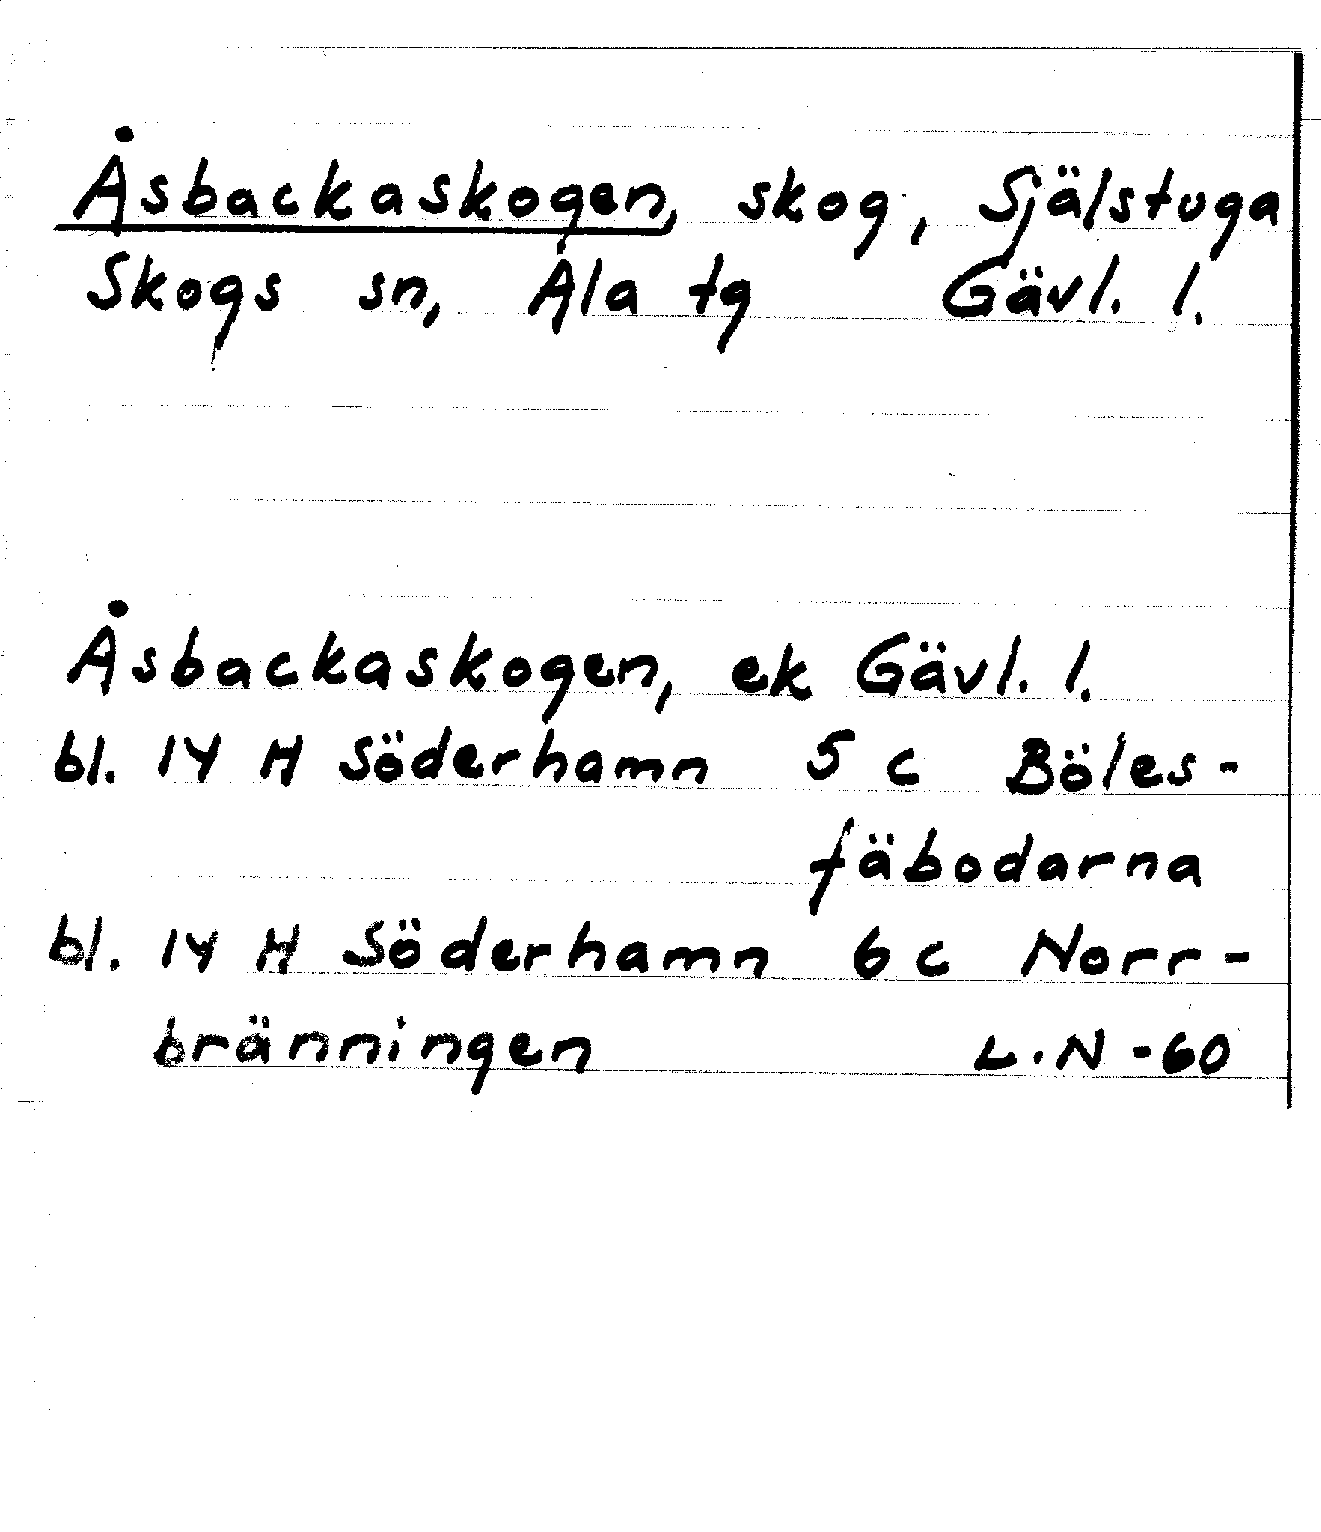 Åsbackaskogen, skog, Själstuga
Skogs sn, Ala tg Gävl. l.
Åsbackaskogen, ek Gävl. l.
bl. 14 H Söderhamn 5 c Böles-
fäbodarna
bl. 14 H Söderhamn 6 c Norr-
bränningen L.N -60